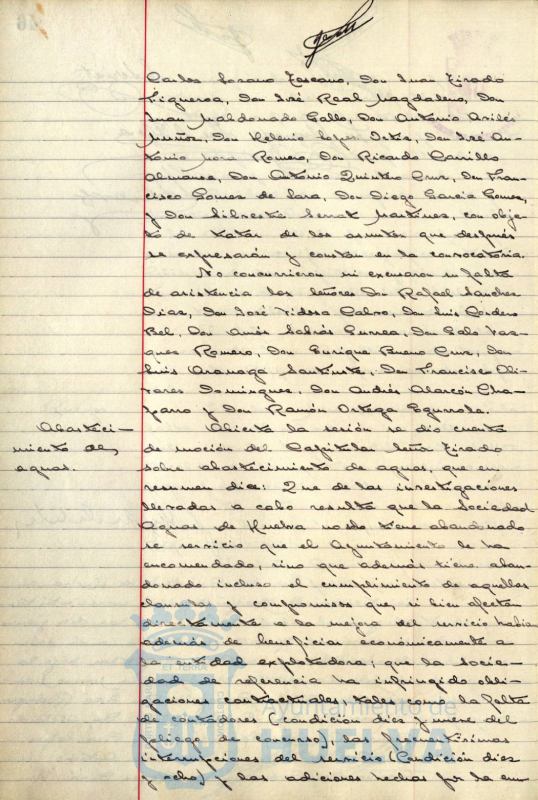 Carlos Lozano Toscano, Don Juan Tirado
Figueroa, Don José Real Magdaleno, Don
Juan Maldonado Gallo, Don Antonio Avilés
Muñoz, Don Helenio Lopez Ortiz, Don José An-
tonio Mora Romero, Don Ricardo Carrillo
Almansa, Don Antonio Quintero Cruz, Don Fran-
cisco Gomez de Lara, Don Diego Garcia Gomez,
y Don Silvestre Serrat Martinez, con obje-
to de tratar de los asuntos que después
se expresarán y constan en la convocatoria.
No concurrieron ni excusaron su falta
de asistencia los señores Don Rafael Sanchez
Diaz, Don José Tidosa Calvo, Don Luis Cordero
Bel, Don Amós Sabrás Gurrea, Don Galo Vaz-
quez Romero, Don Enrique Bueno Cruz, Don
Luis Aranaga Santute, Don Francisco Oli-
vares Dominguez, Don Andrés Alarcón Cha-
parro y Don Ramón Ortega Egurrola.
Abasteci-
miento de
aguas.
Abierta la sesión se dio cuenta
de moción del Capitular Señor Tirado
sobre abastecimiento de aguas, que en
resumen dice: Que de las investigaciones
llevadas a cabo resulta que la Sociedad
Aguas de Huelva no solo tiene abandonado
el servicio que el Ayuntamiento le ha
encomendado, sino que además tiene aban-
donado incluso el cumplimiento de aquellas
clausulas y compromisos que, si bien afectan
directamente a la mejora del servicio habia
además de beneficiar económicamente a
la entidad explotadora; que la Socie-
dad de referencia ha infringido obli-
gaciones contractuales tales como la falta
de contadores (condición diez y nueve del
pliego de concurso), las frecuentisimas
interrupciones del servicio (Condición diez
y ocho) y las adiciones hechas por la em-
Ayuntamiento de
HUELVA